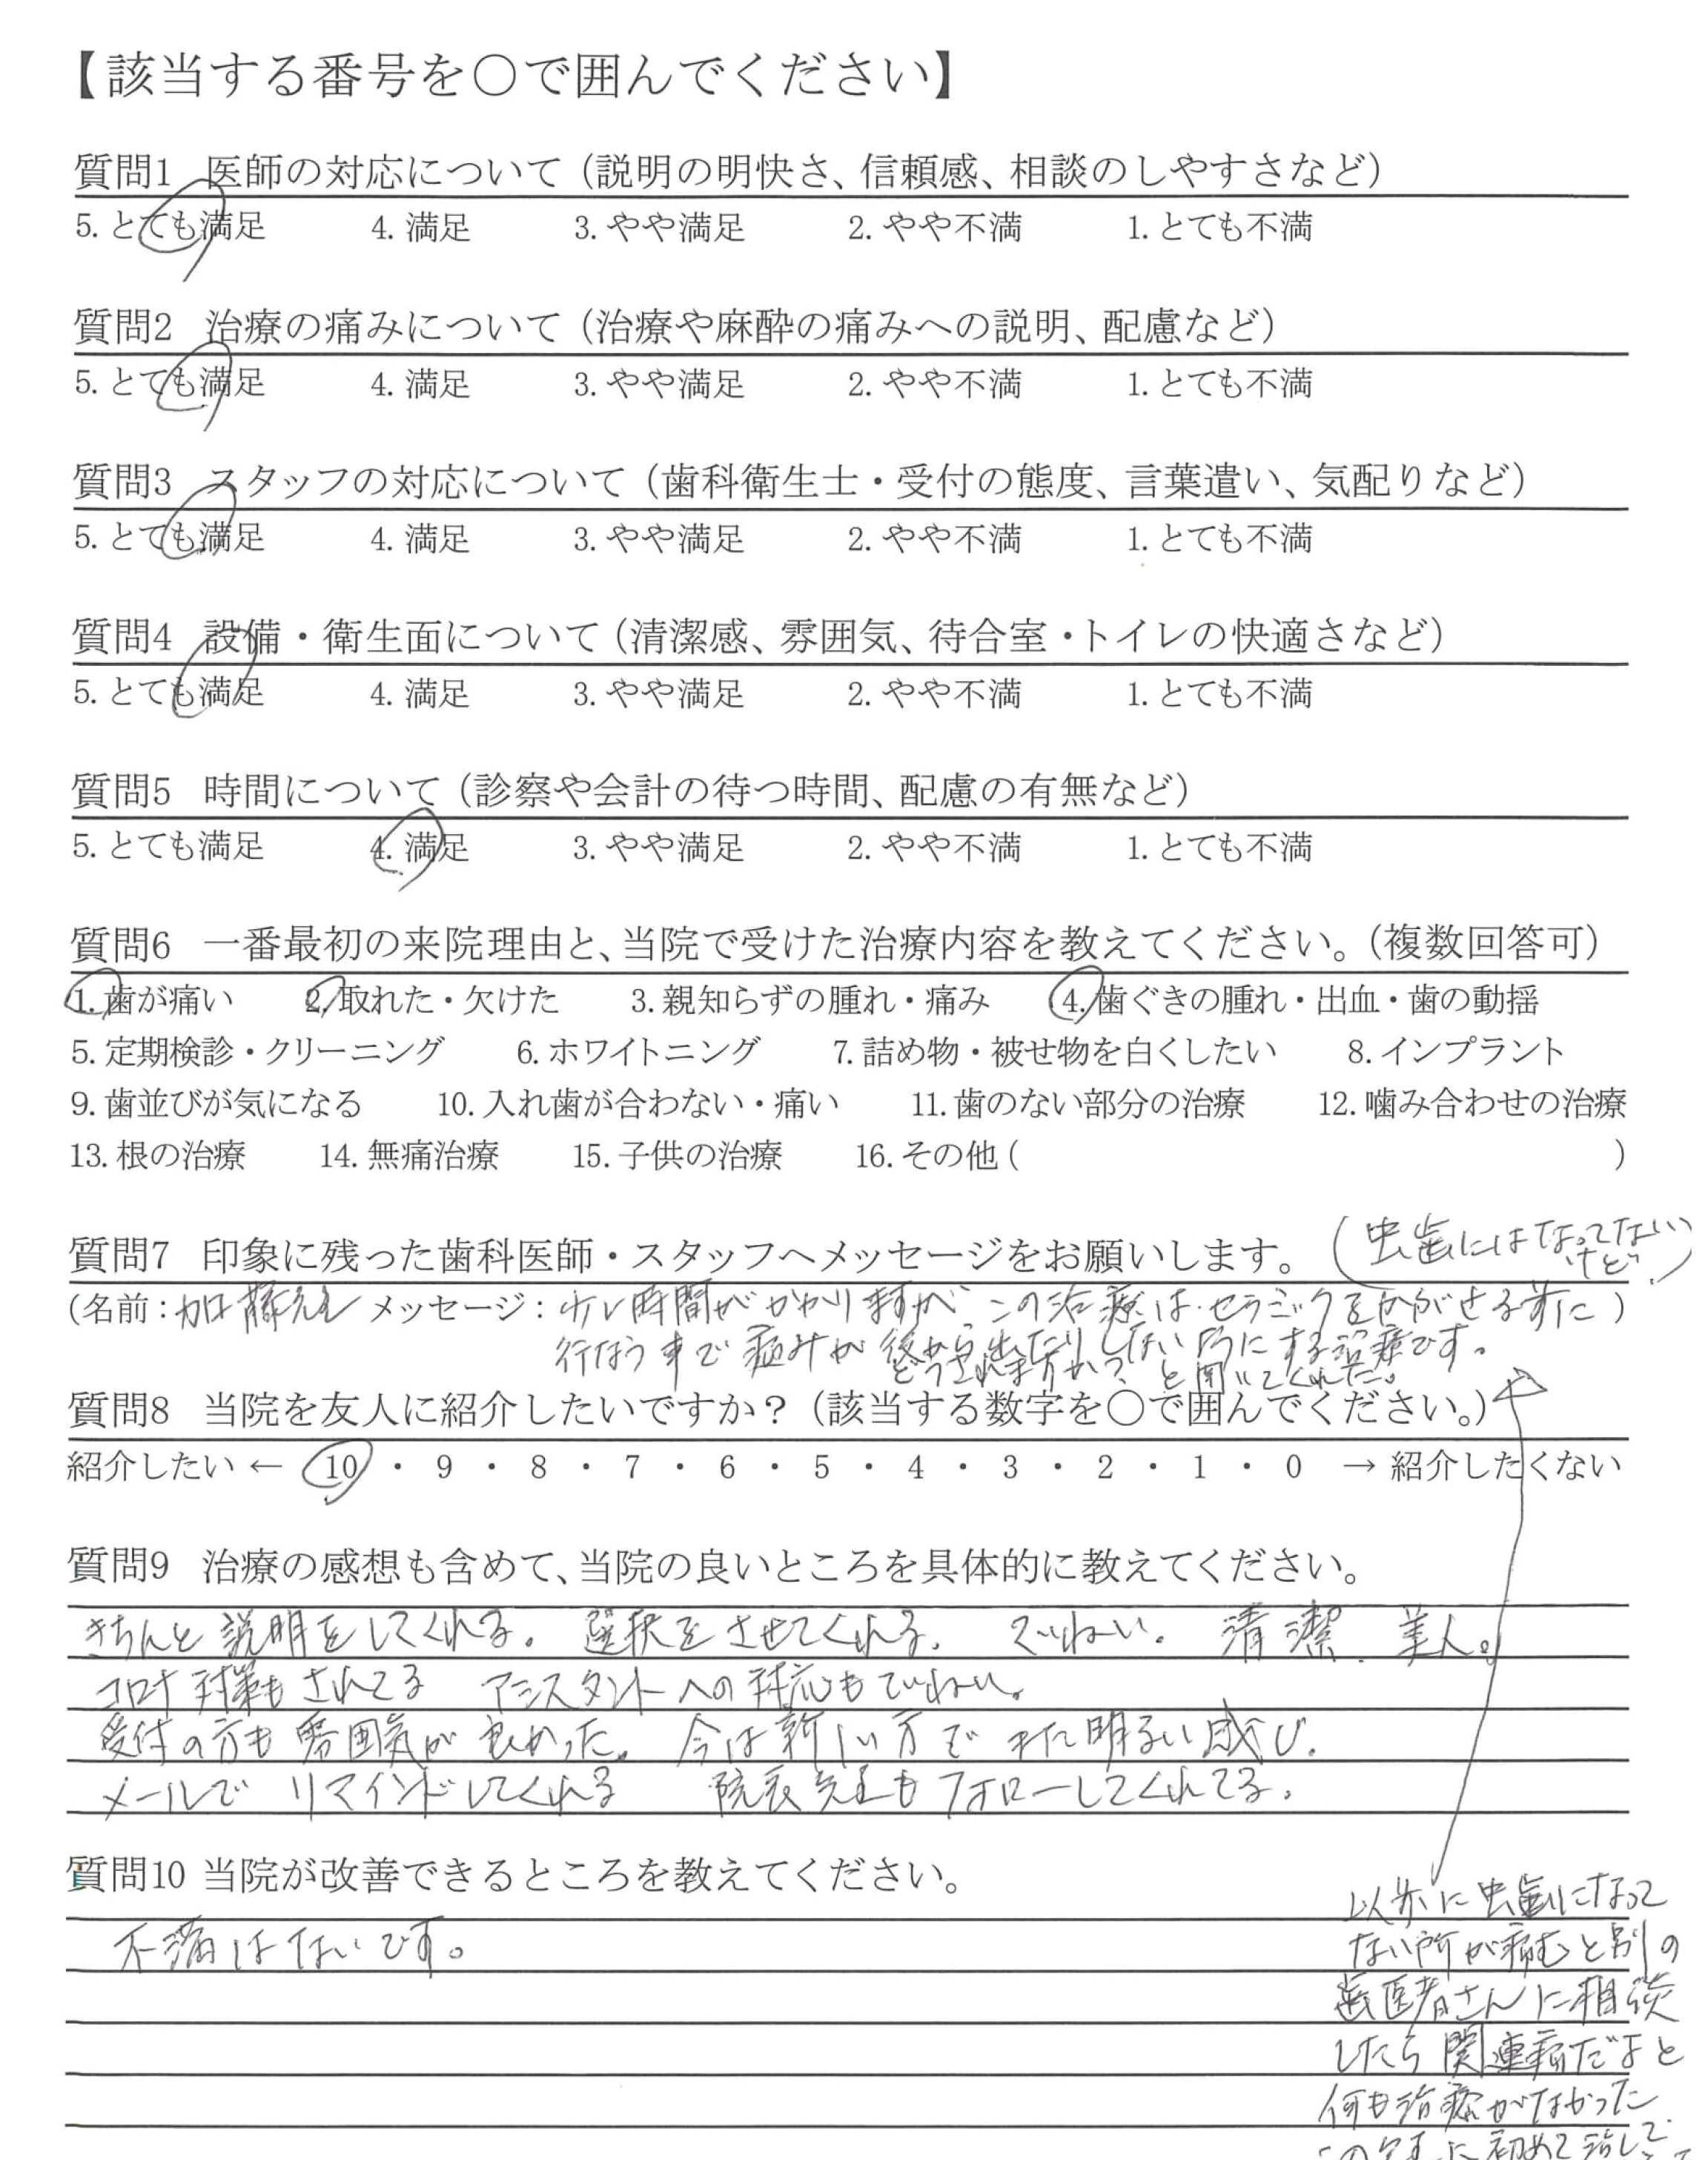 【該当する番号を〇で囲んでください】
質問1 医師の対応について（説明の明快さ、信頼感、相談のしやすさなど）
5. とても満足 4. 満足 3. やや満足 2. やや不満 1. とても不満
質問2 治療の痛みについて（治療や麻酔の痛みへの説明、配慮など）
5. とても満足 4. 満足 3. やや満足 2. やや不満 1. とても不満
質問3 スタッフの対応について（歯科衛生士・受付の態度、言葉遣い、気配りなど）
5. とても満足 4. 満足 3. やや満足 2. やや不満 1. とても不満
質問4 設備・衛生面について（清潔感、雰囲気、待合室・トイレの快適さなど）
5. とても満足 4. 満足 3. やや満足 2. やや不満 1. とても不満
質問5 時間について（診察や会計の待つ時間、配慮の有無など）
5. とても満足 4. 満足 3. やや満足 2. やや不満 1. とても不満
質問6 一番最初の来院理由と、当院で受けた治療内容を教えてください。（複数回答可）
1. 歯が痛い 2. 取れた・欠けた 3. 親知らずの腫れ・痛み 4. 歯ぐきの腫れ・出血・歯の動揺
5. 定期検診・クリーニング 6. ホワイトニング 7. 詰め物・被せ物を白くしたい 8. インプラント
9. 歯並びが気になる 10. 入れ歯が合わない・痛い 11. 歯のない部分の治療 12. 噛み合わせの治療
13. 根の治療 14. 無痛治療 15. 子供の治療 16. その他 ( )
質問7 印象に残った歯科医師・スタッフへメッセージをお願いします。
(虫歯にはなってない
けど)
(名前：加藤先生 メッセージ：少し時間がかかりますが、この治療は、セラミックをかぶせる前に )
行なう事で痛みが後から出たりしない様にする治療です。
どうされますか？と聞いてくれた。
質問8 当院を友人に紹介したいですか？（該当する数字を〇で囲んでください。）
紹介したい ← 10 ・ 9 ・ 8 ・ 7 ・ 6 ・ 5 ・ 4 ・ 3 ・ 2 ・ 1 ・ 0 → 紹介したくない
質問9 治療の感想も含めて、当院の良いところを具体的に教えてください。
きちんと説明をしてくれる。 選択をさせてくれる。 ていねい。 清潔、美人。
コロナ対策もされてる アシスタントへの対応もていねい。
受付の方も雰囲気が良かった。 今は新しい方でまた明るい感じ。
メールでリマインドしてくれる 院長先生もフォローしてくれてる。
質問10 当院が改善できるところを教えてください。
不満はないです。
以前に虫歯になって
ない所が痛むと別の
歯医者さんに相談
したら関連痛だよと
何も治療がなかった
初めて治して